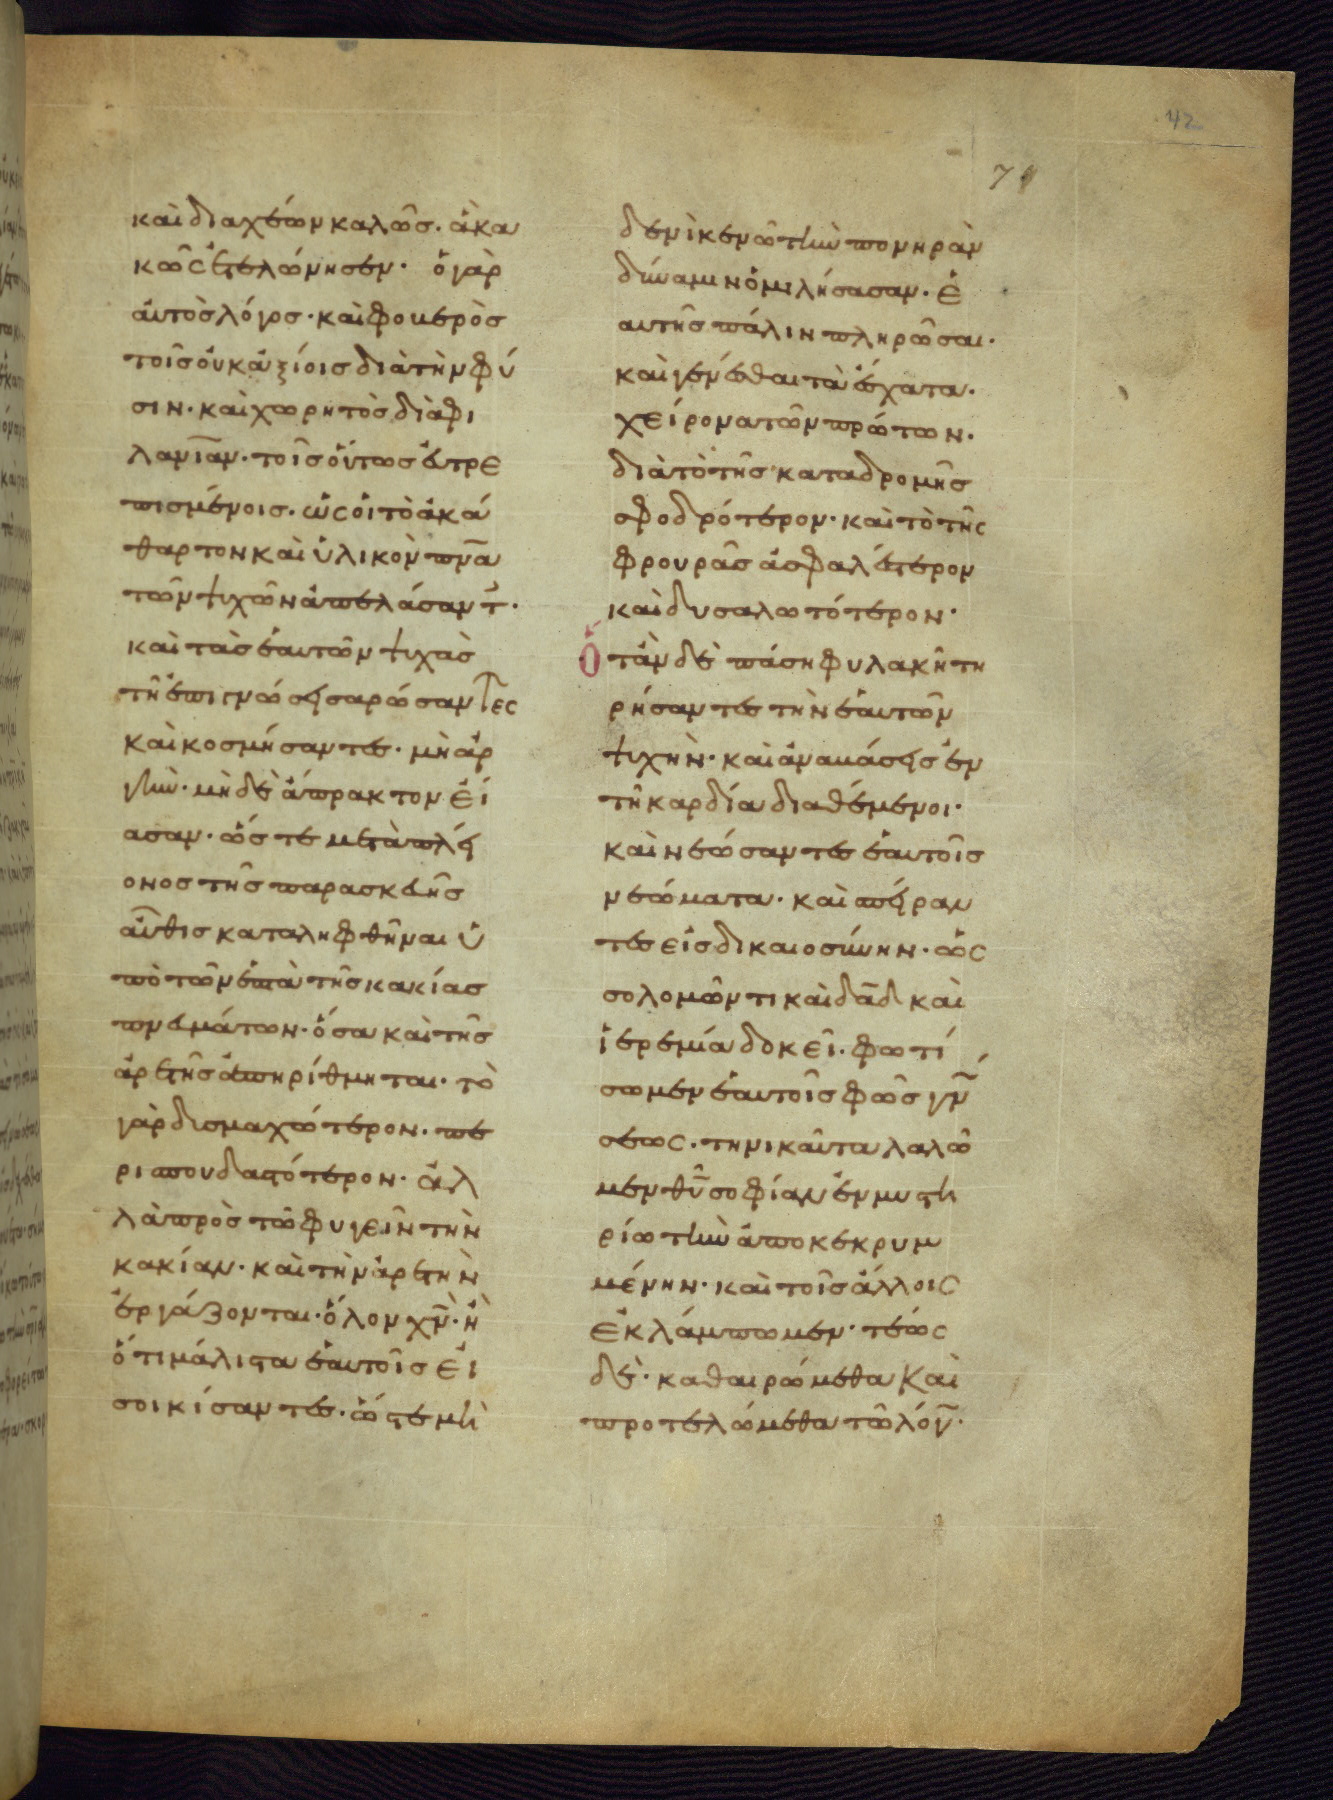 42
71
καὶ διαχέων καλῶς. ἃ κα
κῶς ἐτελώνησεν. ὁ γὰρ
αὐτὸς λόγος· καὶ φοβερὸς
τοῖς οὐκ ἀξίοις διὰ τὴν φύ
σιν· καὶ χωρητὸς διὰ φι
λανίαν· τοῖς οὕτως εὐτρε
πισμένοις. ὡς οἱ τὸ ἀκά
θαρτον καὶ ὑλικὸν πνᾶ
τῶν ψυχῶν ἀπελάσαντ·
καὶ τὰς ἑαυτῶν ψυχὰς
τῇ ἐπιγνώσει σαρώσαντες
καὶ κοσμήσαντες· μὴ ἀρ
γὴν· μὴ δὲ ἄπρακτον εἴ
ασαν. ὥστε μετὰ πλεί
ονος τῆς παρασκευῆς
αὖθις καταληφθῆναι ὑ
πὸ τῶν ἑπτὰ τῆς κακίας
πνευμάτων· ὅσα καὶ τῆς
ἀρετῆς ἀπηρίθμηται. τὸ
γὰρ δυσμαχώτερον· πε
ρισπουδαστότερον. ἀλ
λὰ πρὸς τῶ φυγεῖν τὴν
κακίαν· καὶ τὴν ἀρετὴν
ἐργάζονται· ὅλον χν̄· ἢ
ὅτι μάλιστα ἑαυτοῖς εἰ
σοικίσαντες. ὥστε μὴ
δενὶ κενῶ τὴν πονηρὰν
δύναμιν ὁμιλήσασαν. ἑ
αυτῆς πάλιν πληρῶσαι.
καὶ γενέσθαι τὰ ἔσχατα.
χείρονα τῶν πρώτων.
διὰ τὸ τῆς καταδρομῆς
σφοδρότερον· καὶ τὸ τῆς
φρουρᾶς ἀσφαλέστερον
καὶ δυσαλωτότερον.
Ὅταν δὲ πάση φυλακῆ τη
ρήσαντες τὴν ἑαυτῶν
ψυχὴν· καὶ ἀναβάσεις ἐν
τῆ καρδία διαθέμενοι.
καὶ νεώσαντες ἑαυτοῖς
νεώματα. καὶ σπείραν
τες εἰς δικαιοσύνην. ὡς
σολομῶντι καὶ δᾱδ καὶ
ἱερεμία δοκεῖ. φωτί
σωμεν ἑαυτοῖς φῶς γν
σεως. τηνικαῦτα λαλῶ
μεν θῡ σοφίαν ἐν μυστη
ρίω τὴν ἀποκεκρυμ
μένην. καὶ τοῖς ἄλλοις
ἐκλάμπωμεν. τέως
δὲ· καθαιρώμεθα καὶ
προτελώμεθα τῶ λόγ.